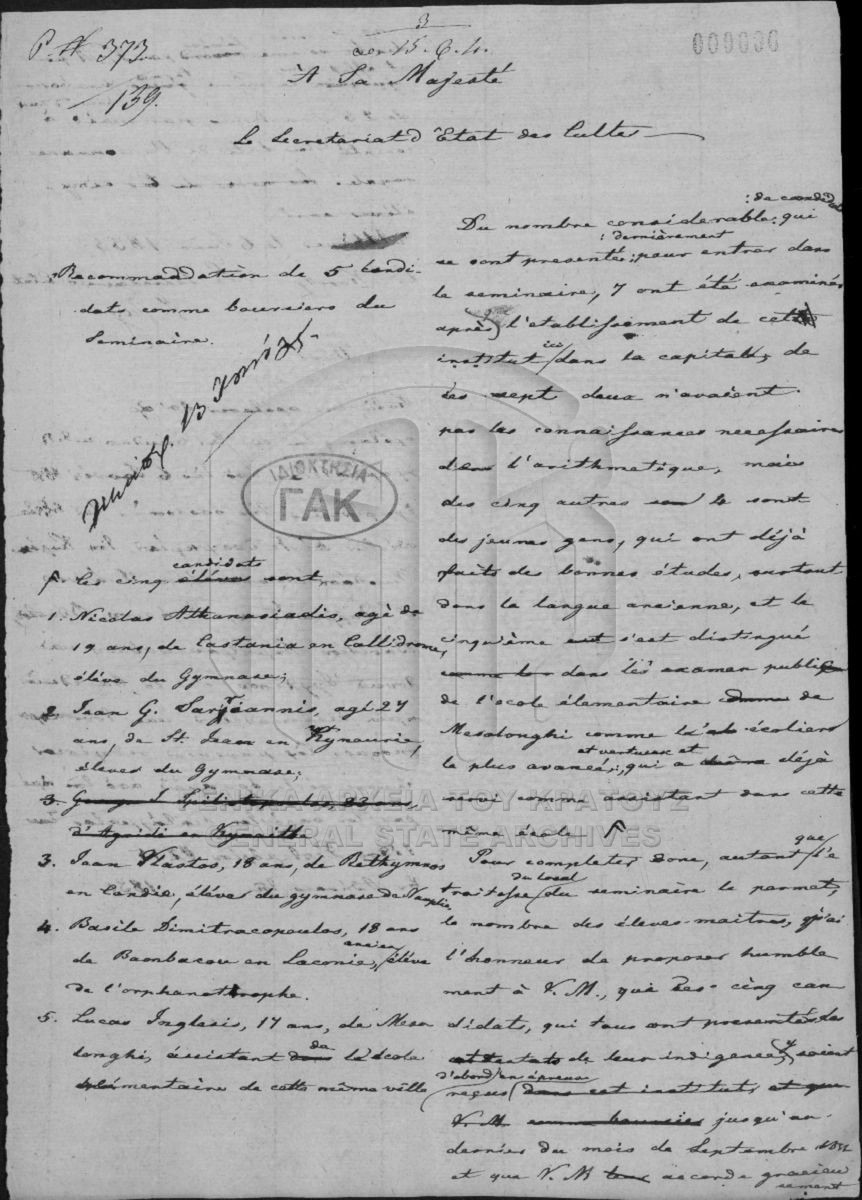 3
P. N. 373.
139.
15. 6. 4.
000006
À Sa Majesté
Le Secretariat d'Etat des Cultes
Recommaddation de 5 Candi-
dats comme boursiers du
Seminaire.
13
ΙΔΙΟΚΤΗΣΙΑ
ΓΑΚ
candidats
Les cinq élèves sont
1. Nicolas Athanasiadis, agé de
19 ans, de Castania en Callidrome,
élève du Gymnase;
2. Jean G. Sarjeannis, agé 27
ans, de St. Jean en Kynourie,
élèves du Gymnase;
3. George J Spiliotopoulos, 22 ans,
d'Agridi en Kynaitha
3. Jean Vlastos, 18 ans, de Rethymnos
en Candie, élèves du gymnase de Nauplie
4. Basile Dimitracopoulos, 18 ans
ancien
de Bambacou en Laconie, élève
de l'orphanotrophe.
5. Lucas Inglesis, 17 ans, de Meso
longhi, assistant dans de l'école
élémentaire de cette même ville
: de candidats
Du nombre considerable: qui
: dernièrement
se sont presentés: pour entrer dans
le seminaire, 7 ont été examinés
après l'etablissement de cet
ici
institut dans la capitale, de
ces sept deux n'avaient
pas les connaissances necessaires
dans l'arithmetique, mais
des cinq autres 4 sont
des jeunes gens, qui ont déjà
faits des bonnes études, surtout
dans la langue ancienne, et le
cinquième s'est distingué
dans les examen publique
de l'école élementaire de
Mesolonghi comme écoliers
et vertueux et
le plus avancé:, qui a même déjà
servi comme assistant dans cette
même école
que
Pour completer donc, autant l'e
du local
troitesse du seminaire le permet,
le nombre des élèves-maitres, j'ai
l'honneur de proposer humble
ment à V. M., que ces cinq can
didats, qui tous ont presentés les
attestats de leur indigence, soient
d'abord en épreuve
reçus dans cet institut, et que
V. M. comme boursiers jusqu'au
dernier du mois de Septembre
et que V. M accorde gracieu
sement
ΓΕΝΙΚΑ ΑΡΧΕΙΑ ΤΟΥ ΚΡΑΤΟΥΣ
GENERAL STATE ARCHIVES